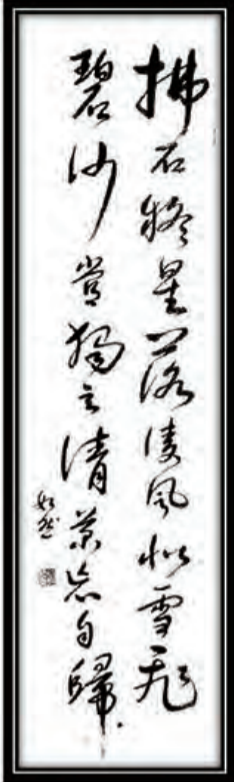 拂石疑星落凌風似雪飛
碧沙常獨立清景忘自歸